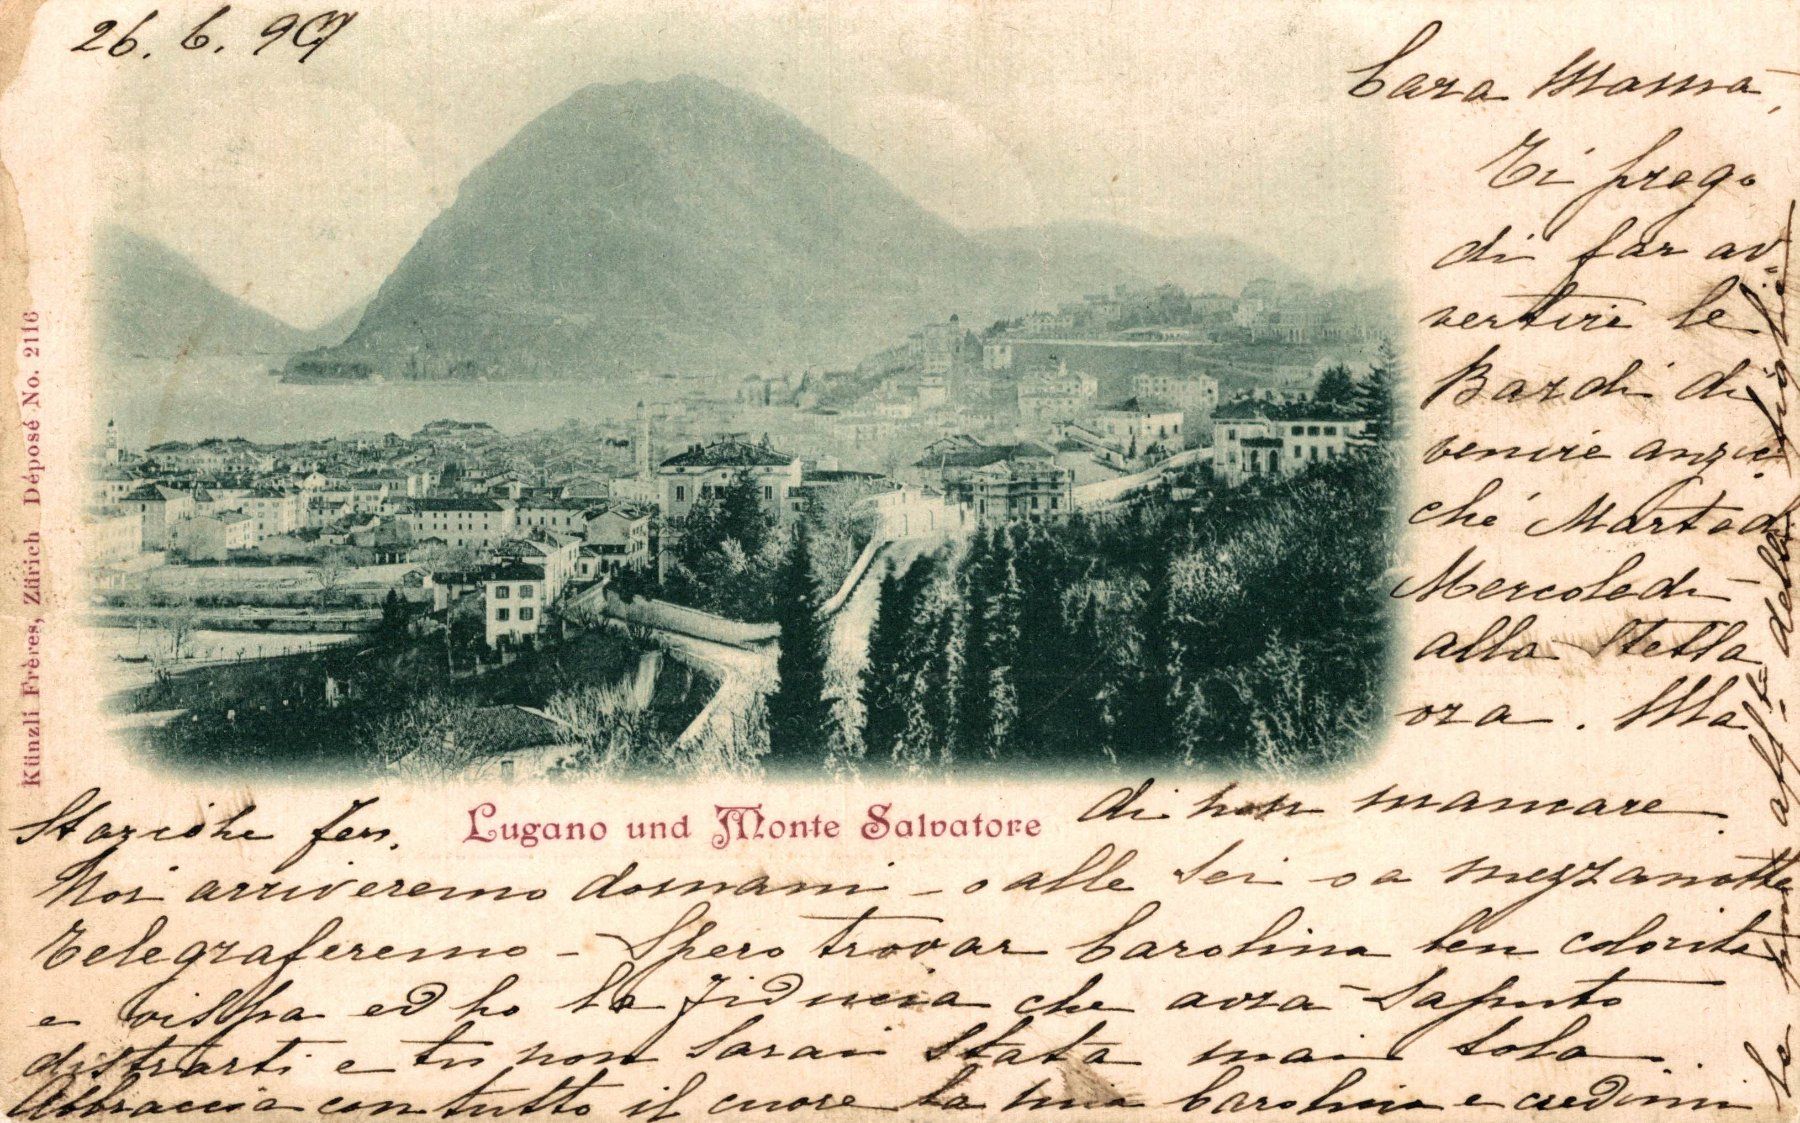 26. 6. 99
Cara Mamma,
Ti prego
di far av-
vertire le
Bardi di
venire anzic
ché Martedì
Mercoledì
alla stessa
ora. Ma
di non mancare.
Künzli Frères, Zürich Déposé No. 2116
Lugano und Monte Salvatore
Noi arriveremo domani - o alle sei - o a mezzanotte
Telegraferemo - Spero trovar Carolina ben colorita
e vispa ed ho la fiducia che avrà saputo
distrarti e tu non sarai stata mai sola.
Abbraccia con tutto il cuore la mia Carolina e credimi
la tua aff.ta della figlia